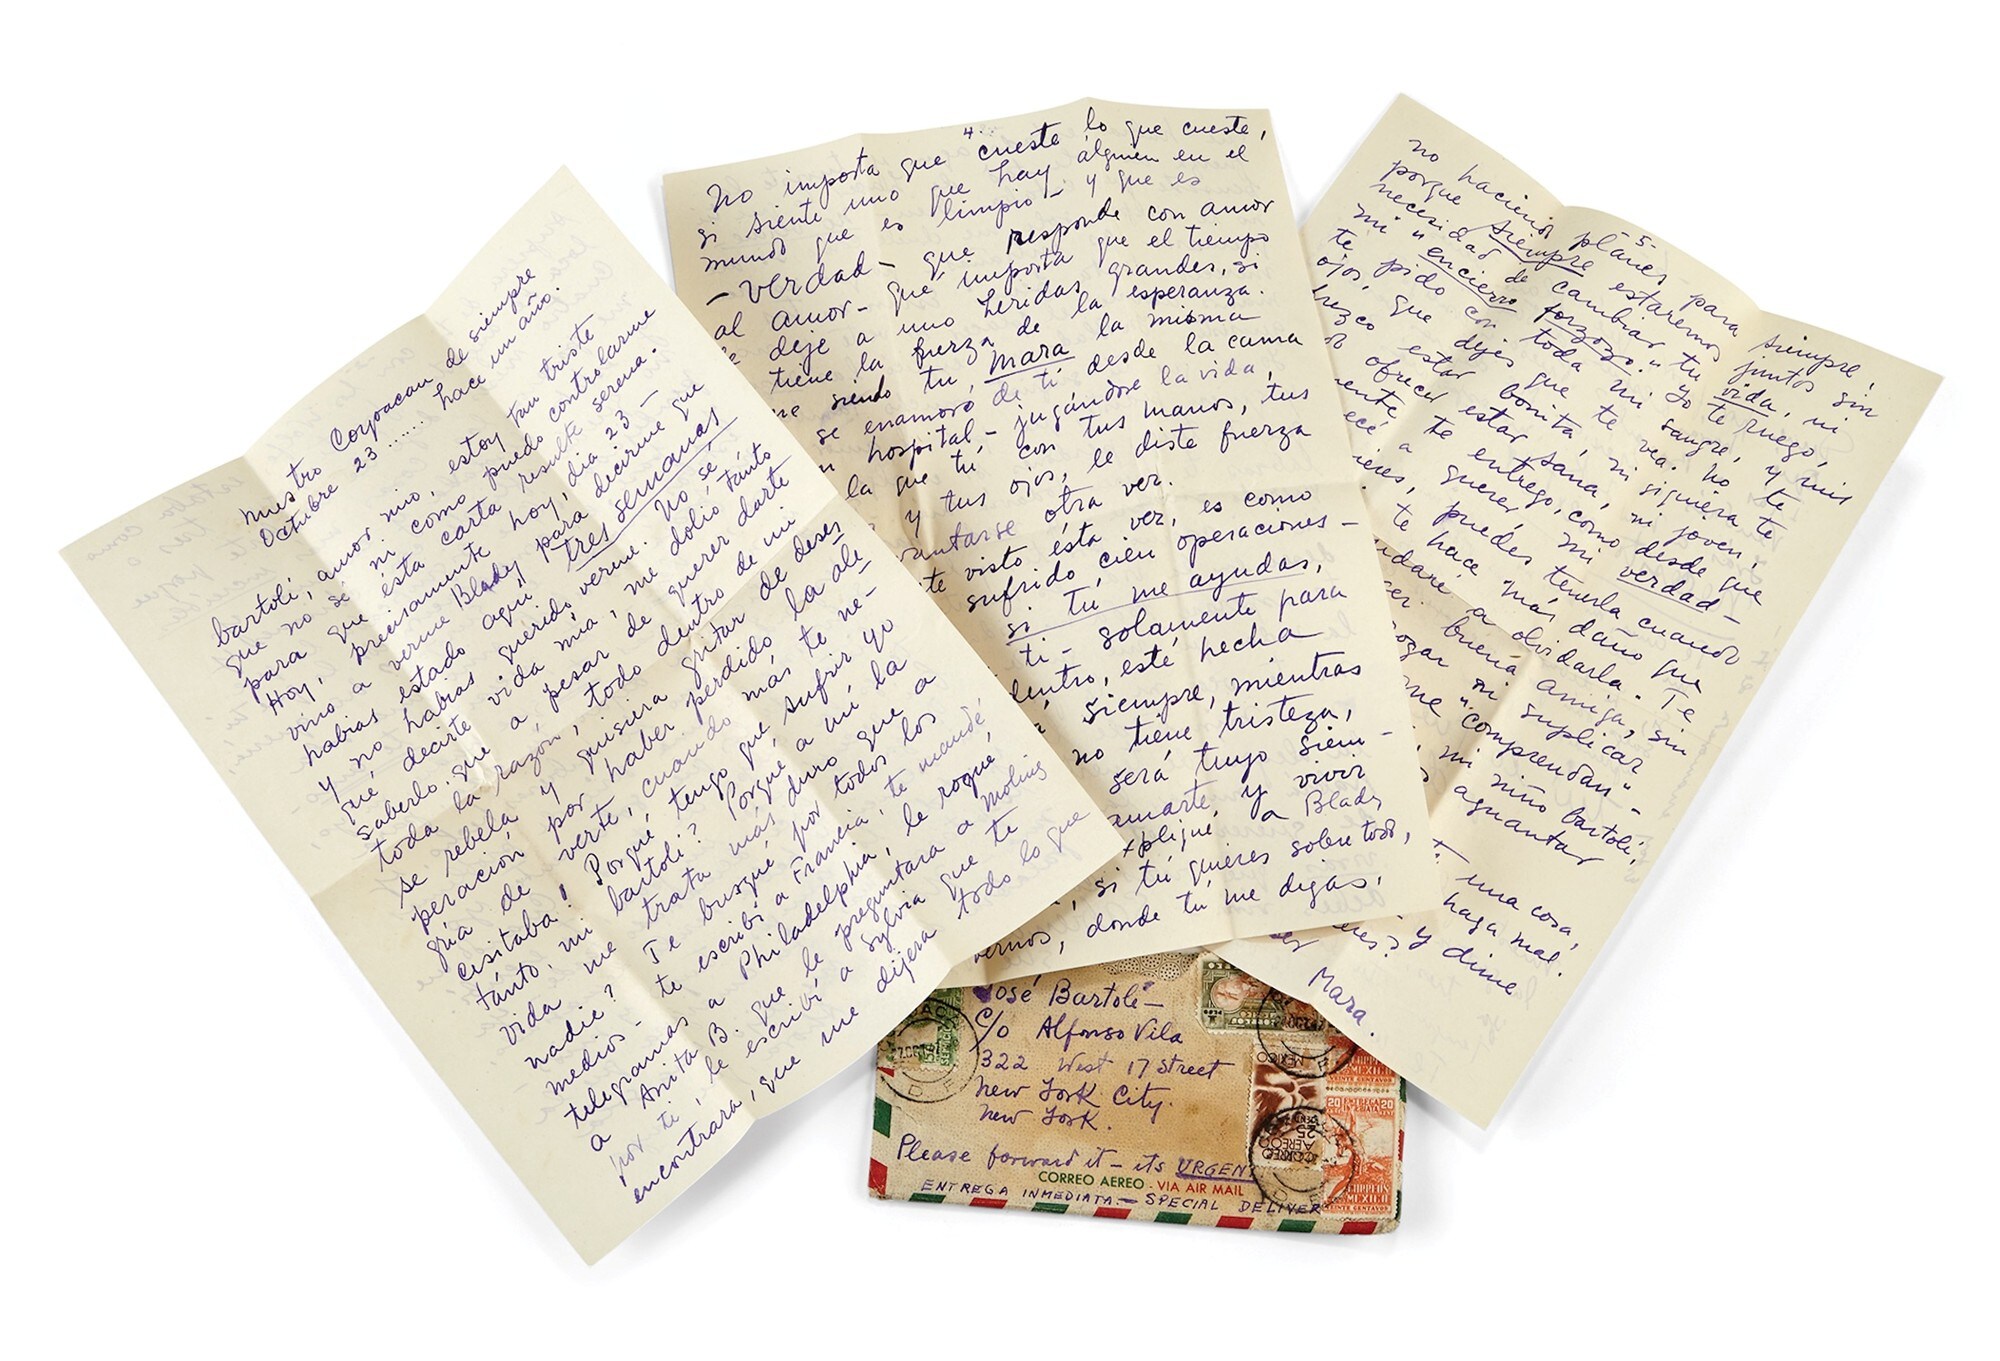 nuestro Coyoacan de siempre
Octubre 23....... hace un año.
bartolí, amor mio, estoy tan triste
que no sé ni como puedo controlarme
para que ésta carta resulte serena.
Hoy, precisamente hoy, día 23 –
vino a verme Blady para decirme que
habías estado aquí tres semanas
y no habías querido verme. No sé
qué decirte vida mía, me dolió tánto
saberlo. que a pesar de querer darte
toda la razón, todo dentro de mi
se rebela y quisiera gritar de deses
peración por haber perdido la ale
gría de verte, cuando más te ne-
cesitaba! Porqué tengo que sufrir yo
tánto, mi bartolí? Porqué a mí la
vida me trata más duro que a
nadie? Te busqué por todos los
medios – te escribí a Francia, te mandé
telegramas a Philadelphia, le rogué
a Anita B. que le preguntara a Molins
por ti, le escribí a Sylvia que te
encontrara, que me dijera todo lo que
4..
No importa que cueste lo que cueste,
si siente uno que hay alguien en el
mundo que es limpio – y que es
– verdad – que responde con amor
al amor – qué importa que el tiempo
deje a uno heridas grandes, si
tiene la fuerza de la esperanza.
siendo tu, Mara la misma
se enamoró de tí desde la cama
hospital – jugándose la vida,
la que tú con tus manos, tus
y tus ojos, le diste fuerza
otra vez.
visto ésta vez, es como
sufrido cien operaciones –
si tú me ayudas,
ti – solamente para
dentro, esté hecha
siempre, mientras
no tiene tristeza,
será tuyo siem-
y vivir
a Blady
si tú quieres sobre todo,
donde tú me digas.
-5-
no hacienos planes para siempre,
porque siempre estaremos juntos sin
necesidad de cambiar tu vida, ni
mi "encierro forzozo." Yo te ruego,
te pido con toda mi sangre, y mis
ojos que dejes que te vea. No te
estar bonita, ni siquiera te
ofrecer estar sana, ni jovén
te entrego, como desde que
a querer, mi verdad –
puedes tenerla cuando
te hace más daño que
a olvidarla. Te
buena amiga, sin
ni suplicar
"comprendan" –
mi niño bartolí,
aguantar
una cosa,
haga mal.
y dime
Mara.
José Bartolí –
c/o Alfonso Vila
322 West 17 Street
New York City.
New York.
Please forward it – its URGEN
CORREO AEREO - VIA AIR MAIL
ENTREGA INMEDIATA – SPECIAL DELIVER
MEXICO
25
AEREO
20 20
VEINTE CENTAVOS
MEXICO
VEINTE CENTAVOS